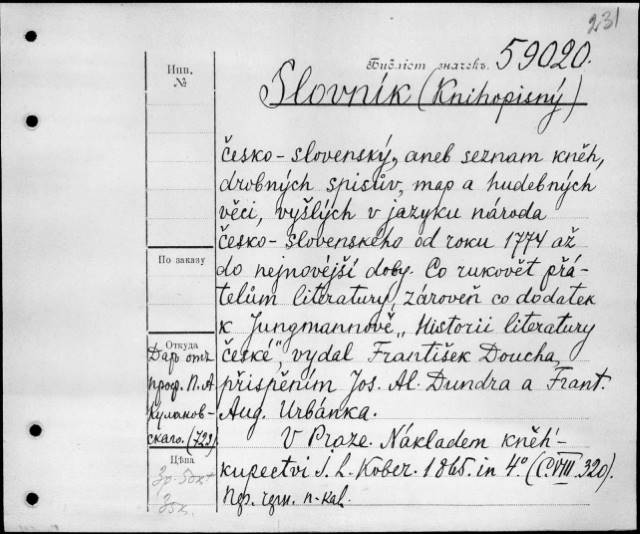 231
Библіот. значекъ. 59020.
Slovník (Knihopisný)
česko-slovenský, aneb seznam kněh,
drobných spisův, map a hudebných
věcí, vyšlých v jazyku národa
česko-slovenského od roku 1774 až
do nejnovéjší doby. Co rukovět přá-
telům literatury, zároveň co dodatek
k Jungmannově „Historii literatury
české", vydal František Doucha,
přispěním Jos. Al. Dundra a Frant.
Aug. Urbánka.
V Praze. Nákladem kněh-
kupectví I. L. Kober. 1865. in 4° (C. VIII. 320).
Инв.
№
По заказу
Откуда
Даръ отъ
проф. П. А.
Кулаков-
скаго. (723)
Цѣна